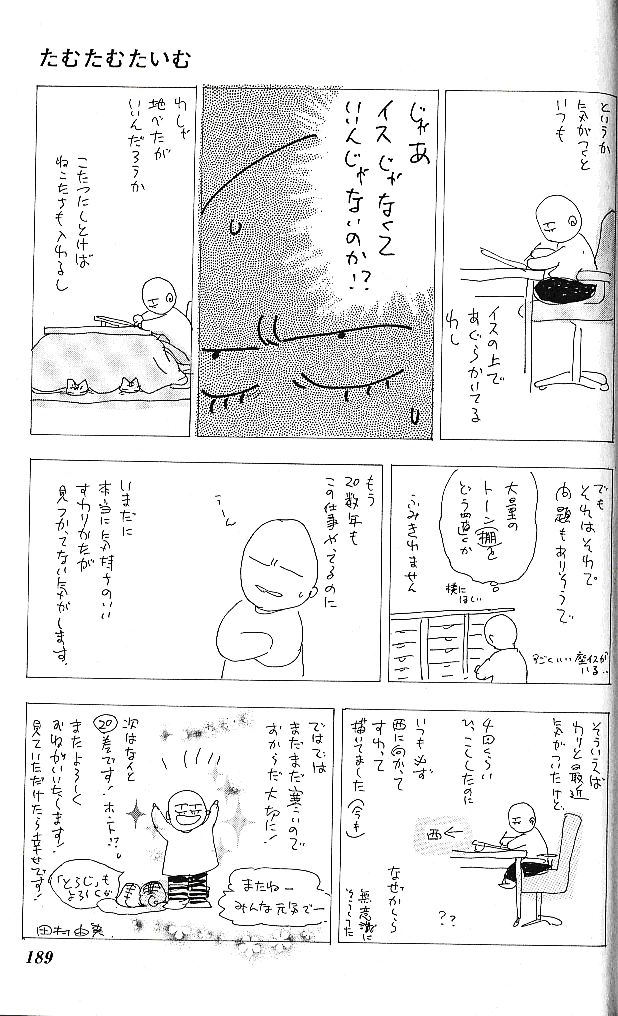 たむたむたいむ
というか
気がつくと
いつも
イスの上で
あぐらかいてる
わし
じゃあ
イスじゃなくて
いいんじゃないのか!?
わしゃ
地べたが
いいんだろうか
こたつにしとけば
ねこたちも入れるし
でも
それはそれで
問題もありそうで
大量の
トーン棚を
どう置くとか
ふみきれません
横に
ほしい
すごくいい座イスが
いる…
もう
20数年も
この仕事やってるのに
うーん
いまだに
本当に気持ちのいい
すわりかたが
見つかってない気がします。
そういえば
わりと最近
気がついたけど、
4回くらい
ひっこしたのに
いつも必ず
西に向かって
すわって
描いてました(今も)
西←
なぜかしら
無意識に
そうしてた
??
ではでは
まだまだ寒いので
おからだ大切に!
次はなんと
⑳巻です!ホント!?
またよろしく
おねがいいたします!
見ていただけたら幸せです!
またねー
みんな元気でー
「とらじ」も
よろしくな
田村由美.
189